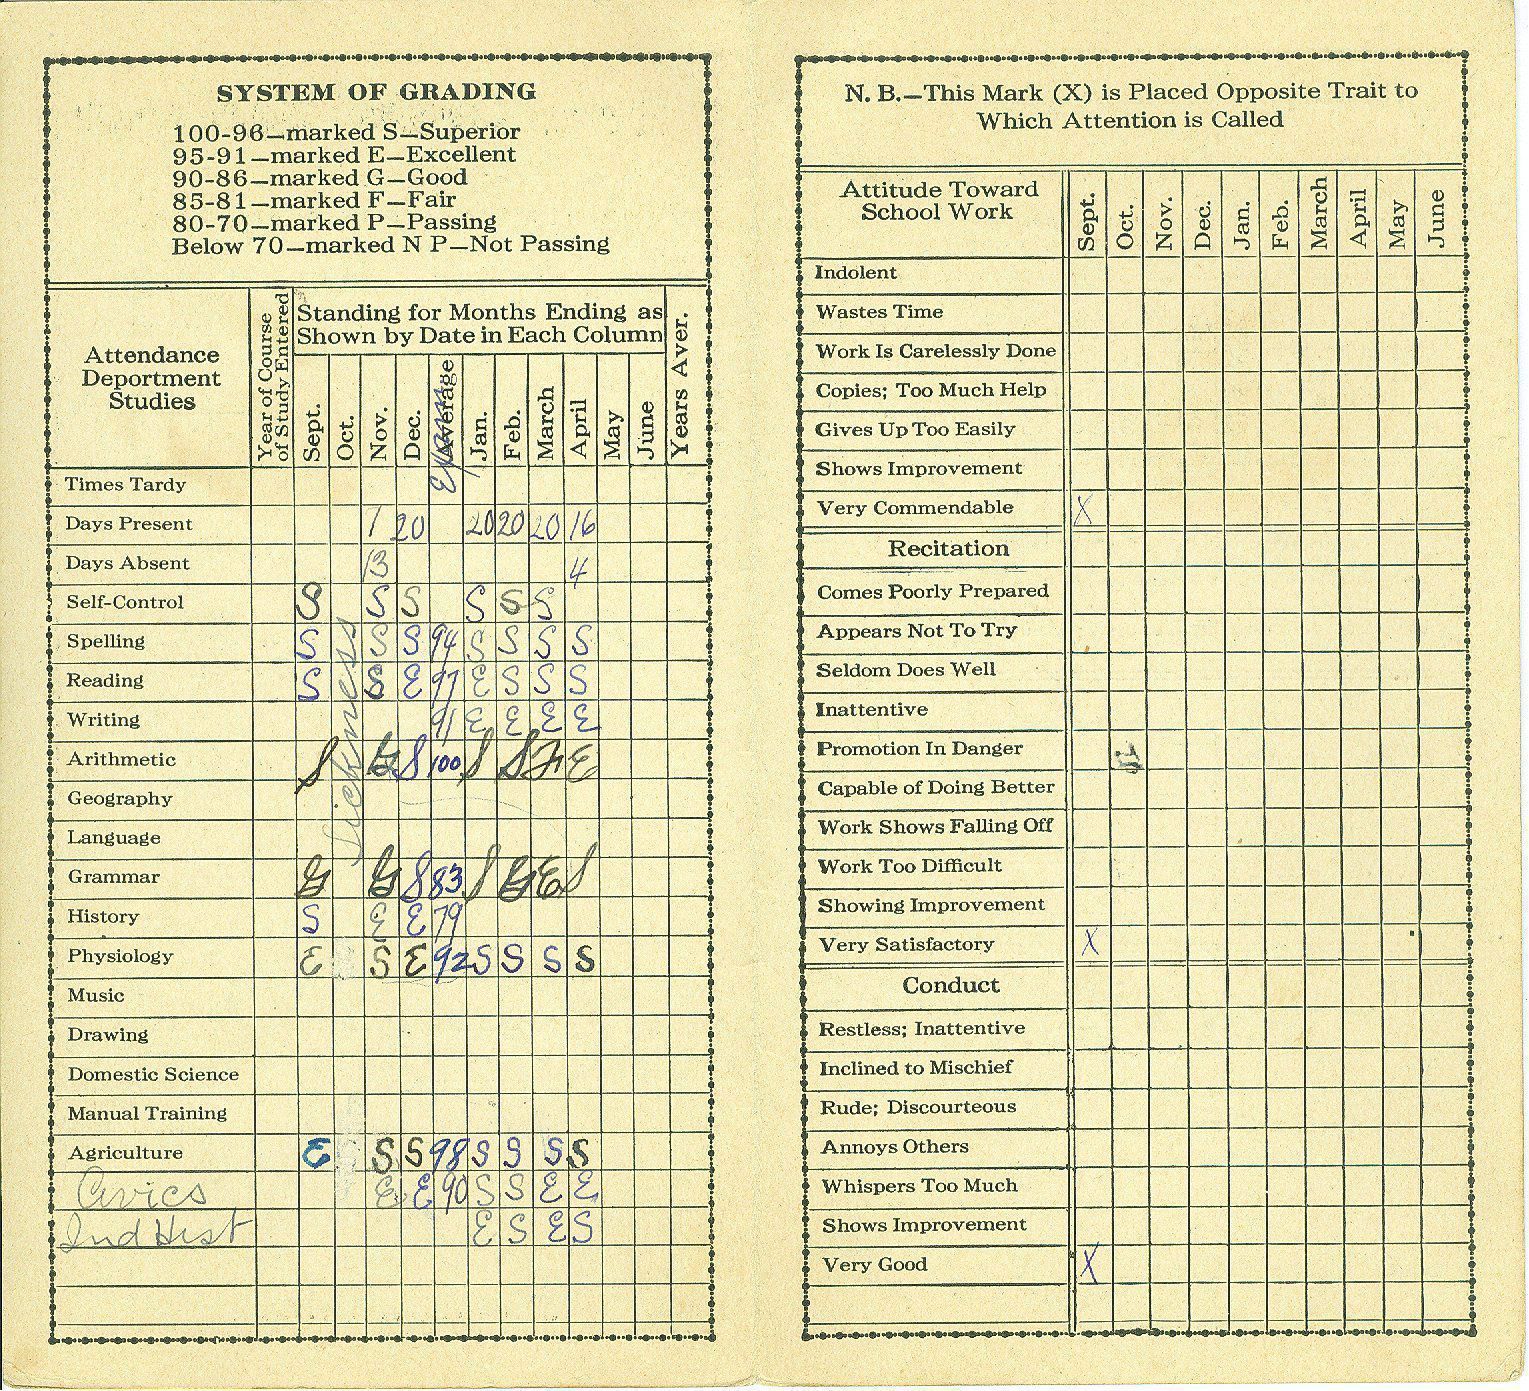 SYSTEM OF GRADING
100-96—marked S—Superior
95-91—marked E—Excellent
90-86—marked G—Good
85-81—marked F—Fair
80-70—marked P—Passing
Below 70—marked N P—Not Passing
Attendance
Deportment
Studies
Year of Course
of Study Entered
Standing for Months Ending as
Shown by Date in Each Column
Sept. Oct. Nov. Dec. Average Jan. Feb. March April May June
Years Aver.
Exam
Times Tardy
Days Present 7 20 20 20 20 16
Days Absent 13 4
Self-Control S S S S S S
Spelling S S S 94 S S S S
Reading S S E 97 E S S S
Writing 91 E E E E
Arithmetic S G S 100 S S F E
Geography
Language
Grammar G G S 83 S G E S
History S E E 79
Physiology E S E 92 S S S S
Sickness
Music
Drawing
Domestic Science
Manual Training
Agriculture E S S 98 S S S S
Civics E E 90 S S E E
Ind Hist E S E S
N. B.—This Mark (X) is Placed Opposite Trait to
Which Attention is Called
Attitude Toward
School Work
Sept. Oct. Nov. Dec. Jan. Feb. March April May June
Indolent
Wastes Time
Work Is Carelessly Done
Copies; Too Much Help
Gives Up Too Easily
Shows Improvement
Very Commendable X
Recitation
Comes Poorly Prepared
Appears Not To Try
Seldom Does Well
Inattentive
Promotion In Danger
Capable of Doing Better
Work Shows Falling Off
Work Too Difficult
Showing Improvement
Very Satisfactory X
Conduct
Restless; Inattentive
Inclined to Mischief
Rude; Discourteous
Annoys Others
Whispers Too Much
Shows Improvement
Very Good X